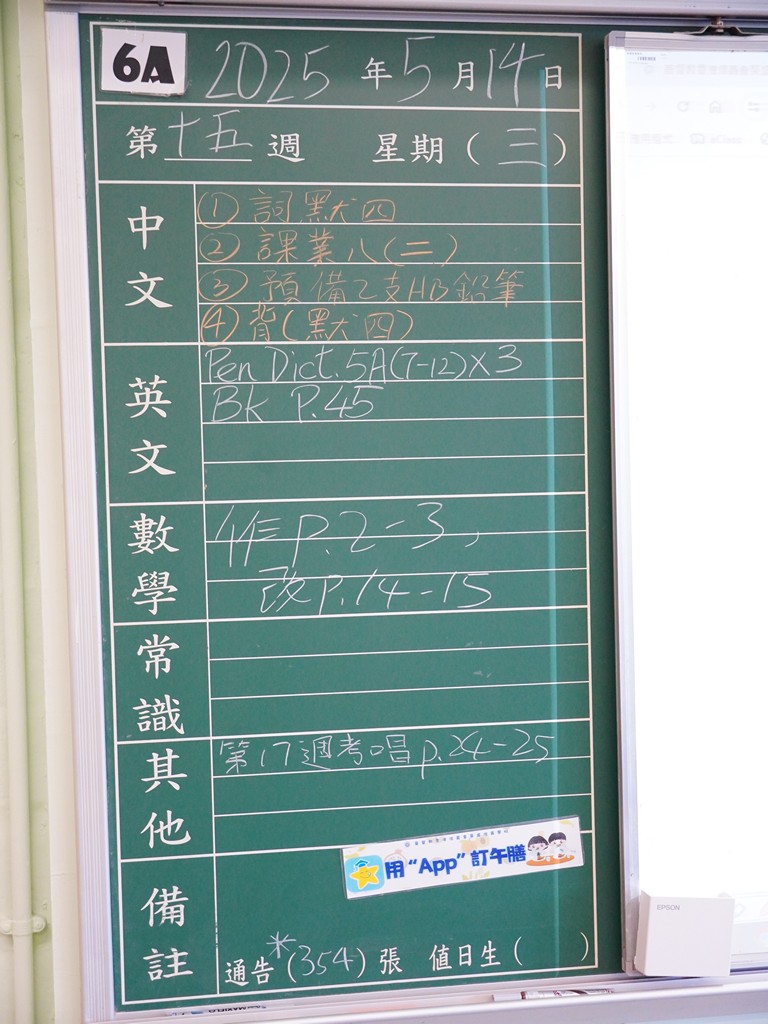 6A 2025 年 5 月 14 日
第 十五 週 星期 ( 三 )
中文
① 詞默四
② 課業八(二)
③ 預備2支HB鉛筆
④ 背(默四)
英文
Pen Dict. 5A(7-12)x3
BK P.45
數學
作 p.2-3,
改 p.14-15
常識
其他
第17週考唱 p.24-25
備註
用“App”訂午膳
通告*(354)張 值日生( )
EPSON